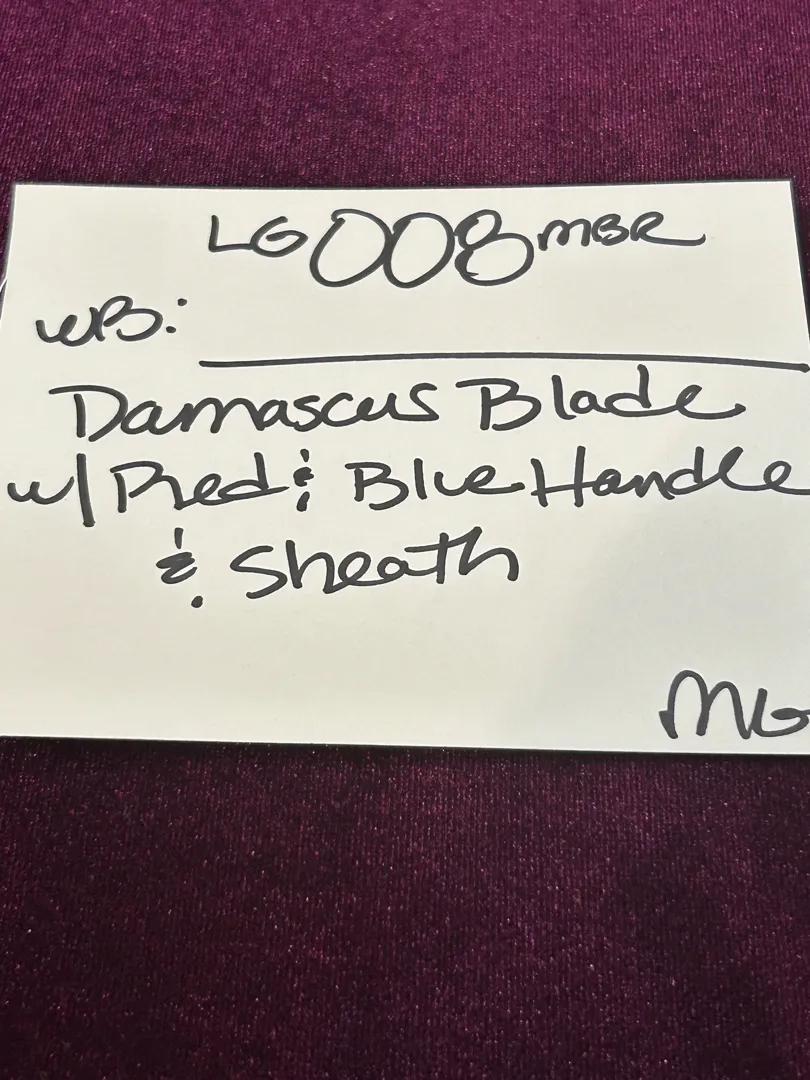 LG008MBR
WB:
Damascus Blade
w/ Red & Blue Handle
& Sheath
MG